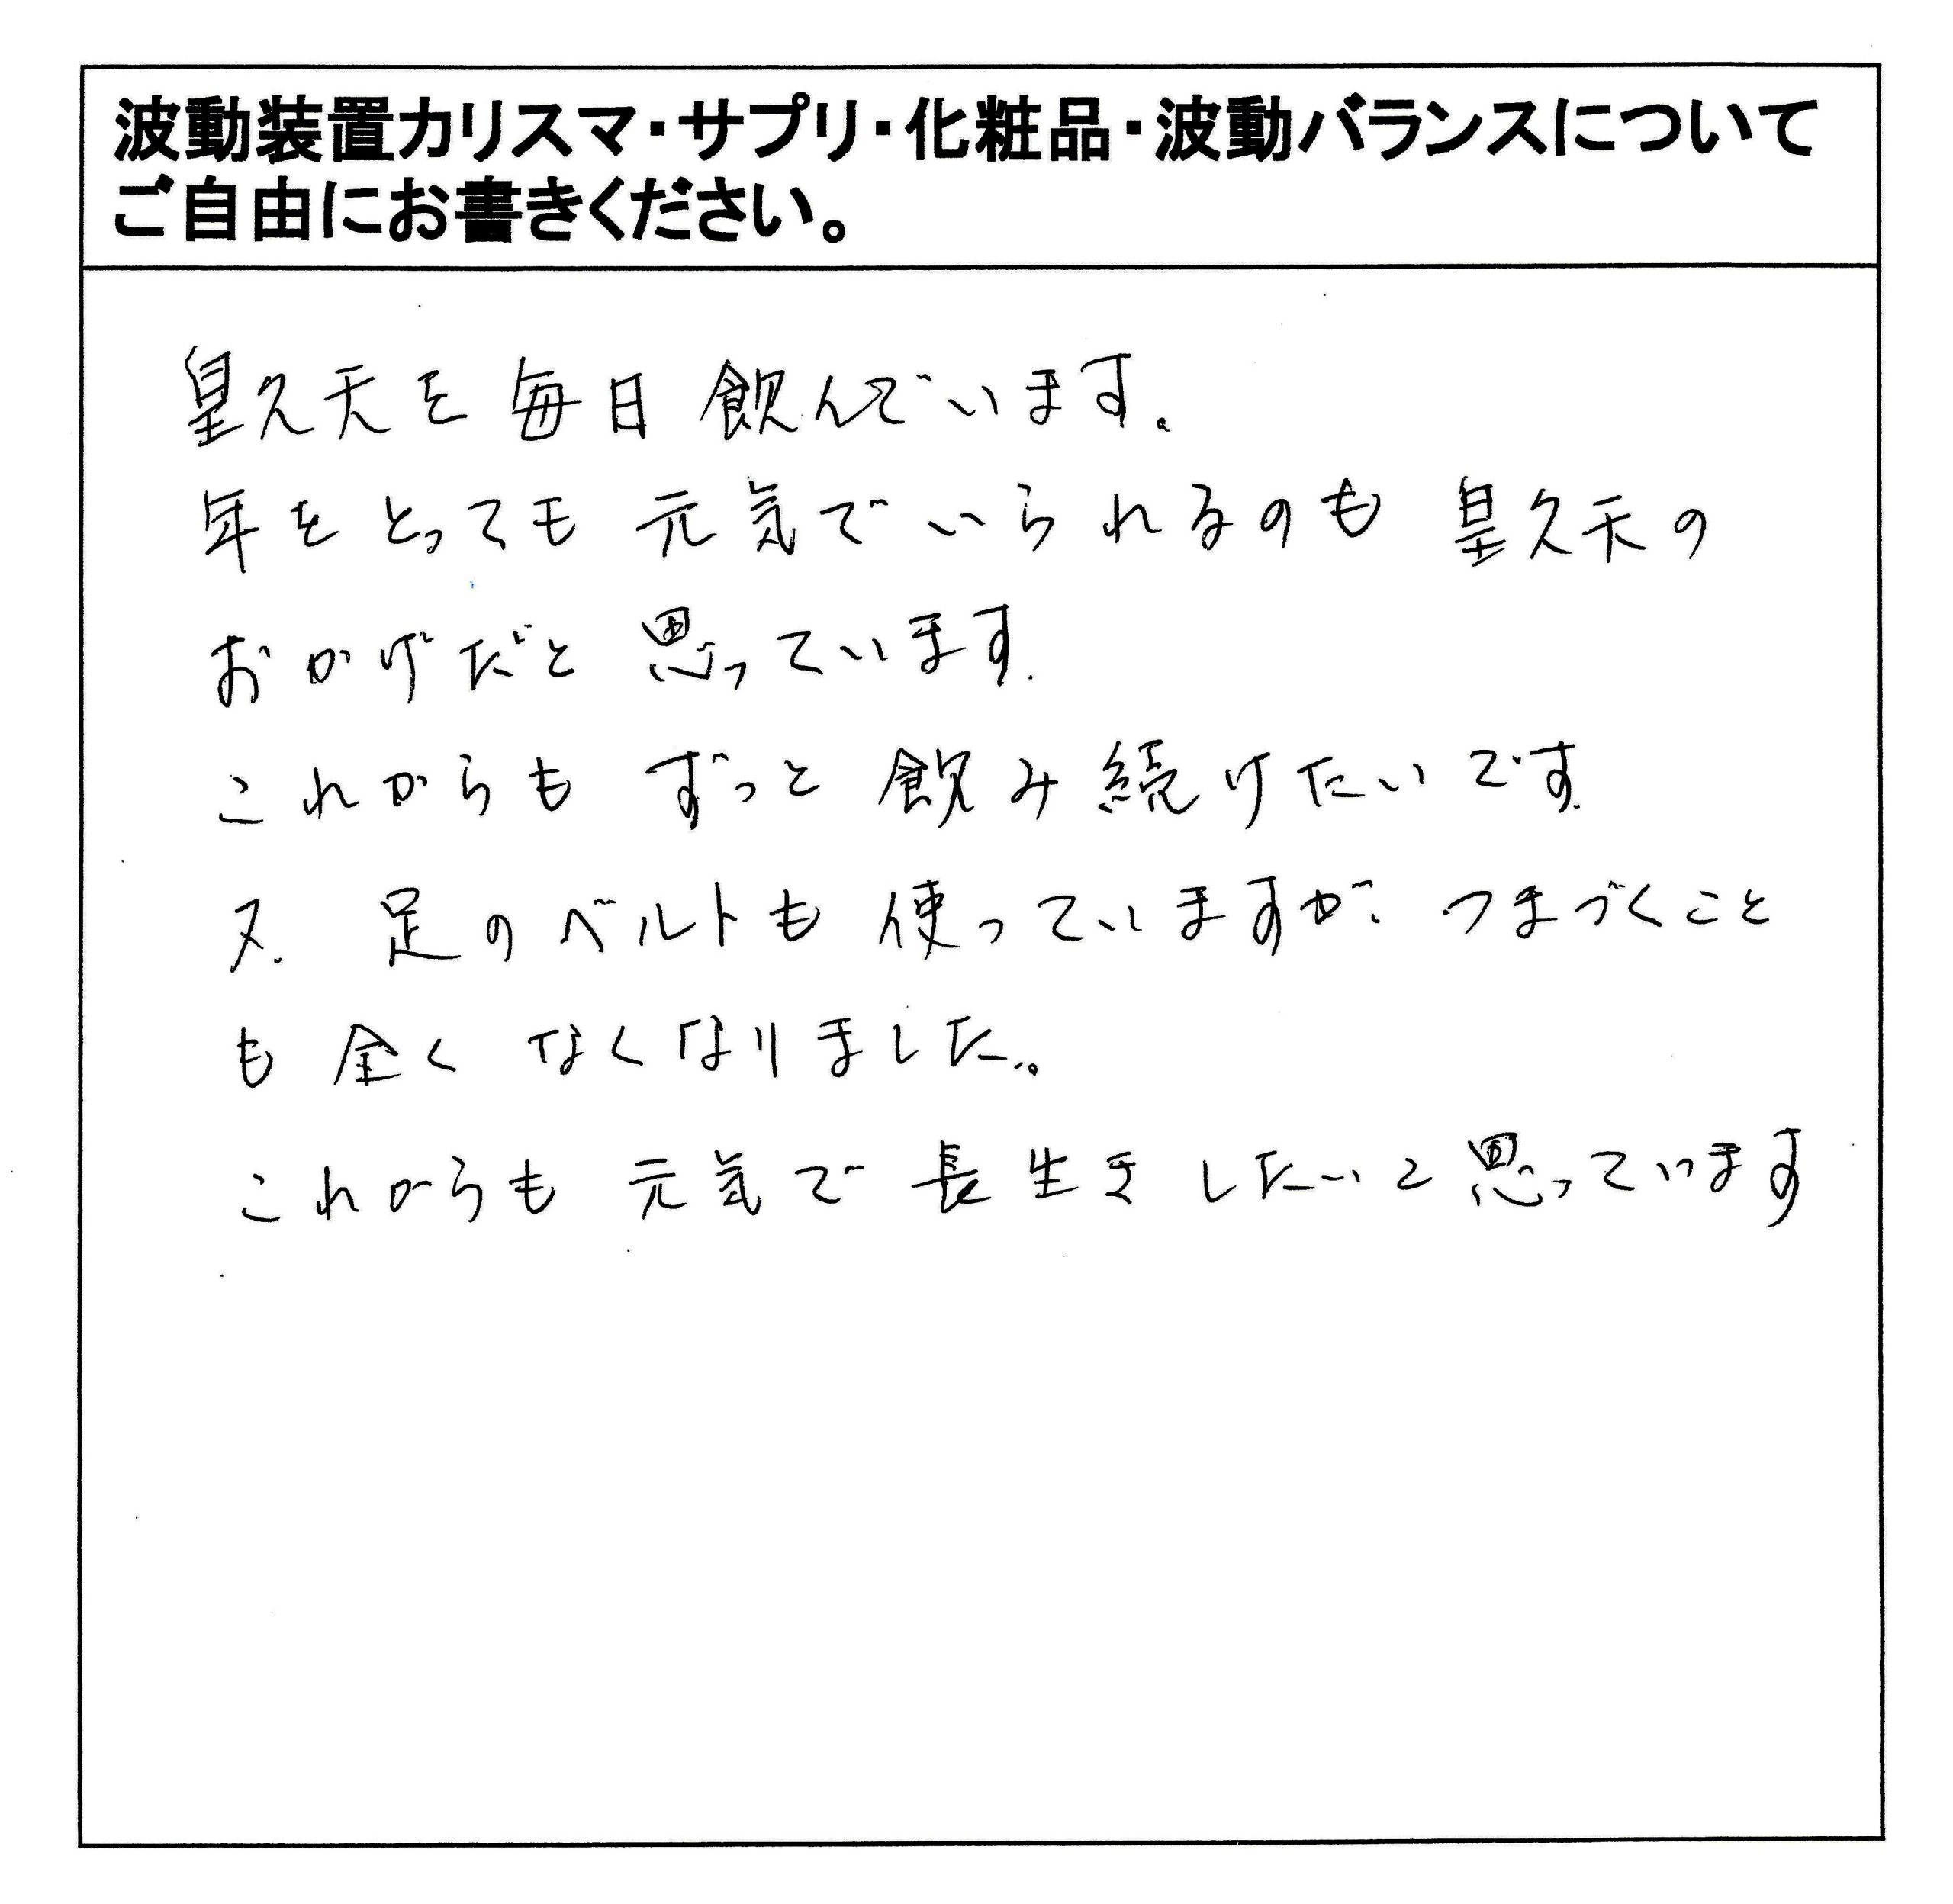 波動装置カリスマ・サプリ・化粧品・波動バランスについて
ご自由にお書きください。
皇久天を毎日飲んでいます。
年をとっても元気でいられるのも皇久天の
おかげだと思っています.
これからもずっと飲み続けたいです.
又、足のベルトも使っていますが、つまづくこと
も全くなくなりました。
これからも元気で長生きしたいと思っています